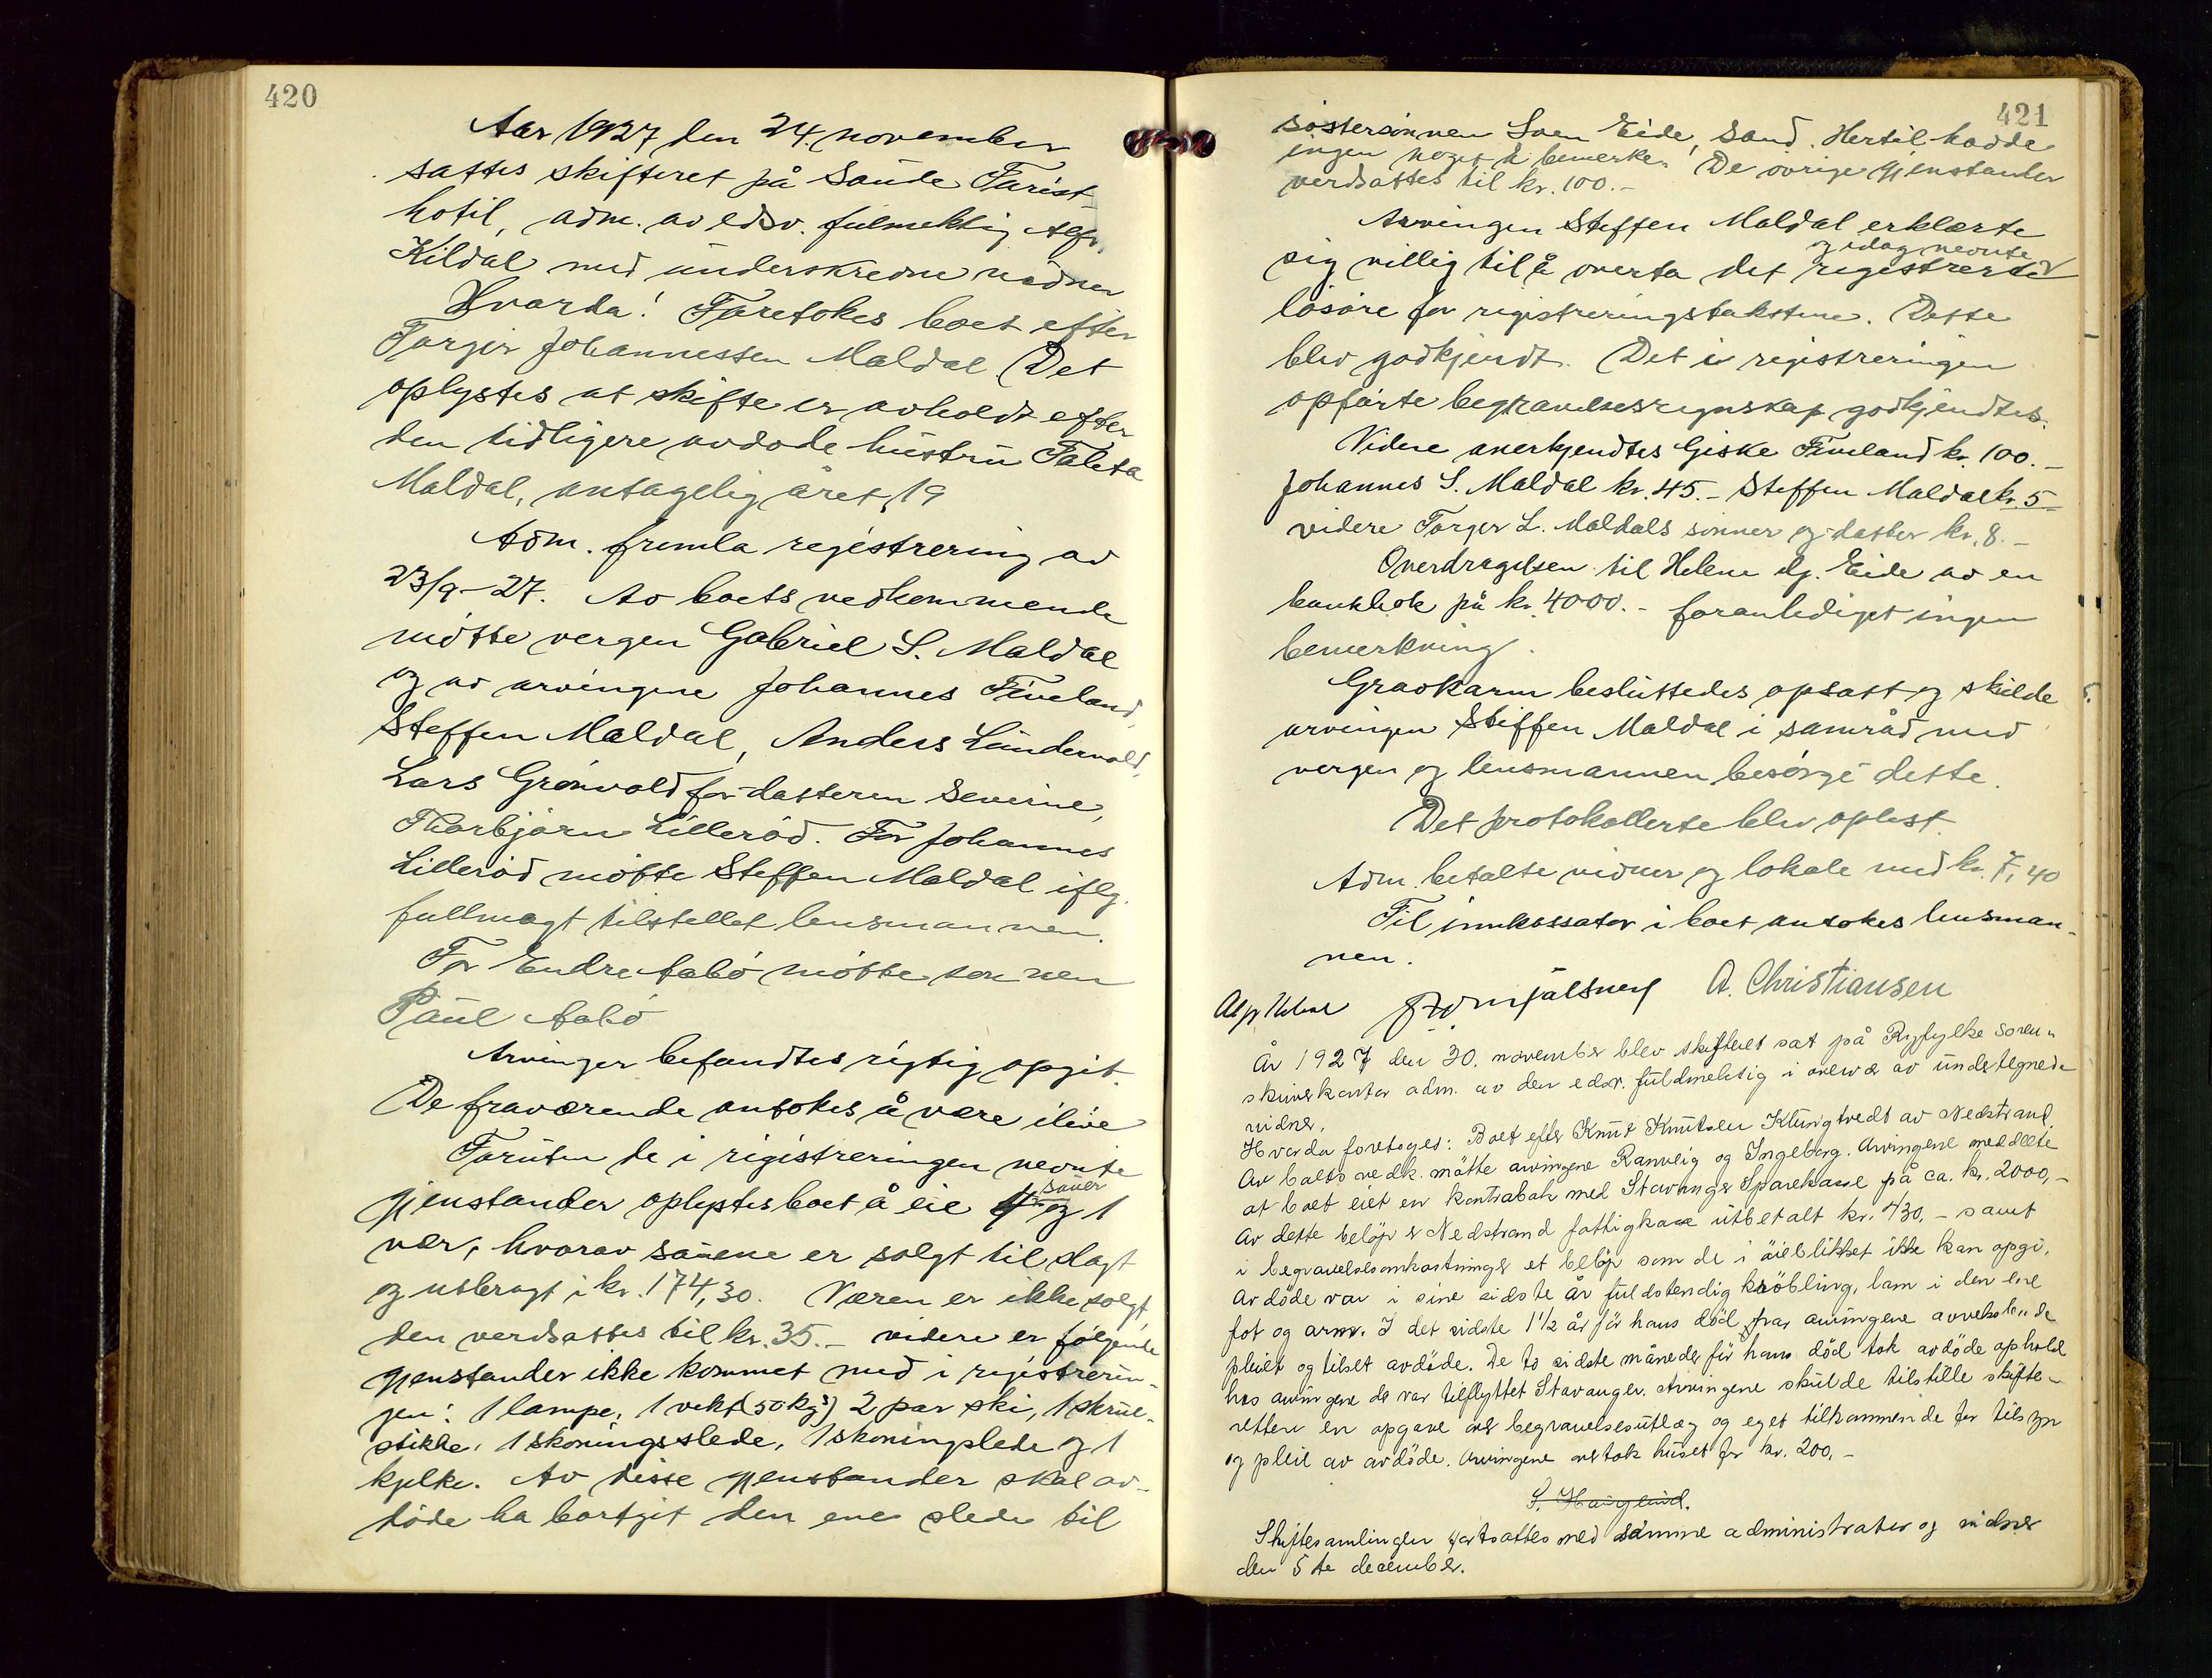 420
Aar 1927 den 24. november
sattes skifteret på Saude Turist
hotil, adm. av edsv. fulmektig Alf.
Kildal med underskrevne vidner
Hvorda! Foretokes boet efter
Torger Johannessen Maldal. Det
oplystes at skifte er avholdt efter
den tidligere avdøde hustru Taleta
Maldal, antagelig året 19
Adm. fremla registrering av
23/9-27. Av boets vedkommende
møtte vergen Gabriel S. Maldal
og av arvingene Johannes Fiveland,
Steffen Maldal, Anders Lundevold,
Lars Grønvold for datteren Severine,
Thorbjørn Lillerød. For Johannes
Lillerød møtte Steffen Maldal iflg.
fullmagt tilstellet lensmannen.
For Endre Aabø møtte sønnen
Paul Aabø
Arvinger befandtes rigtig opgit.
De fraværende antokes å være ilive
Foruten de i registreringen nevnte
gjenstander oplystes boet å eie 4 sauer og 1
vær, hvorav sauene er solgt til slagt
og utbragt i kr. 174,30. Væren er ikke solgt,
den verdsattes til kr. 35.- videre er følgende
gjenstander ikke kommet med i registrerin-
gen: 1 lampe, 1 vekt (50 kg's) 2 par ski, 1 skrue-
stikke, 1 skoningsslede, 1 skoningslede og 1
kjelke. Av disse gjenstander skal av-
døde ha bortgit den ene slede til
421
søstersønnen Sven Eide, Sand. Hertil hadde
ingen noget å bemerke. De øvrige gjenstander
verdsattes til kr. 100.-
Arvingen Steffen Maldal erklærte
og idag nevnte
sig villig til å overta det registrerte
løsøre for registreringstakstene. Dette
blev godkjendt. Det i registreringen
opførte begravelsesregnskap godkjendtes.
Videre anerkjendtes Giske Fiveland kr. 100.-
Johannes S. Maldal kr. 45.- Steffen Maldal kr. 5-
videre Torger L. Maldals sønner og datter kr. 8.-
Overdragelsen til Helene Eide av en
bankbok på kr. 4000.- foranlediget ingen
bemerkning.
Gravkarm besluttedes opsatt og skulde
arvingen Steffen Maldal i samråd med
vergen og lensmannen besørge dette.
Det protokollerte blev oplest.
Adm. betalte vidner og lokale med kr. 7,40
Til innkassator i boet antokes lensman-
nen.
A. Christiansen
År 1927 den 30. november blev skifteret sat på Ryfylke soren-
skriverkontor adm. av den edsv. fuldmektig i overvær av undertegnede
vidner.
Hvorda foretoges: Boet efter Knut Knutsen Klungtvedt av Nedstrand.
Av boets vedk. møtte arvingene Ranveig og Ingeborg. Arvingene meddelte
at boet eiet en kontrabok med Stavanger Sparekasse på ca. kr. 2000,-
Av dette beløp er Nedstrand fattigkasse utbetalt kr. 430,- samt
i begravelsesomkostninger et beløp som de i øieblikket ikke kan opgi.
Avdøde var i sine sidste år fuldstendig krøbling, lam i den ene
fot og arm. I det sidste 1½ år før hans død har arvingene avvekslende
pleiet og tilset avdøde. De to sidste måneder før hans død tok avdøde ophold
hos arvingene da var tilflyttet Stavanger. Arvingene skulde tilstille skifte-
retten en opgave over begravelsesutlæg og eget tilkommende for tilsyn
og pleie av avdøde. Arvingene overtok huset for kr. 200,-
S. Hauglund.
Skiftesamlingen fortsattes med samme administrator og vidner
den 5te december.